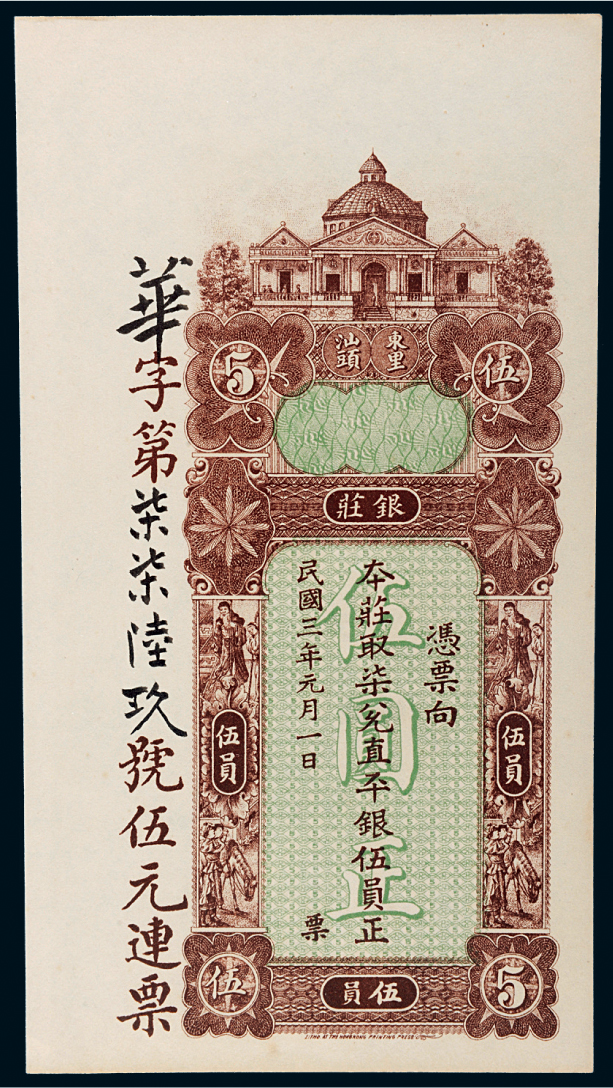 5
汕頭
東里
伍
銀莊
憑票向
本莊取柒兌直平銀伍員正
民國三年元月一日
票
伍圓正
伍員
伍員
伍
伍員
5
華字第柒柒陸玖號伍元連票
LITHO AT THE HONGKONG PRINTING PRESS